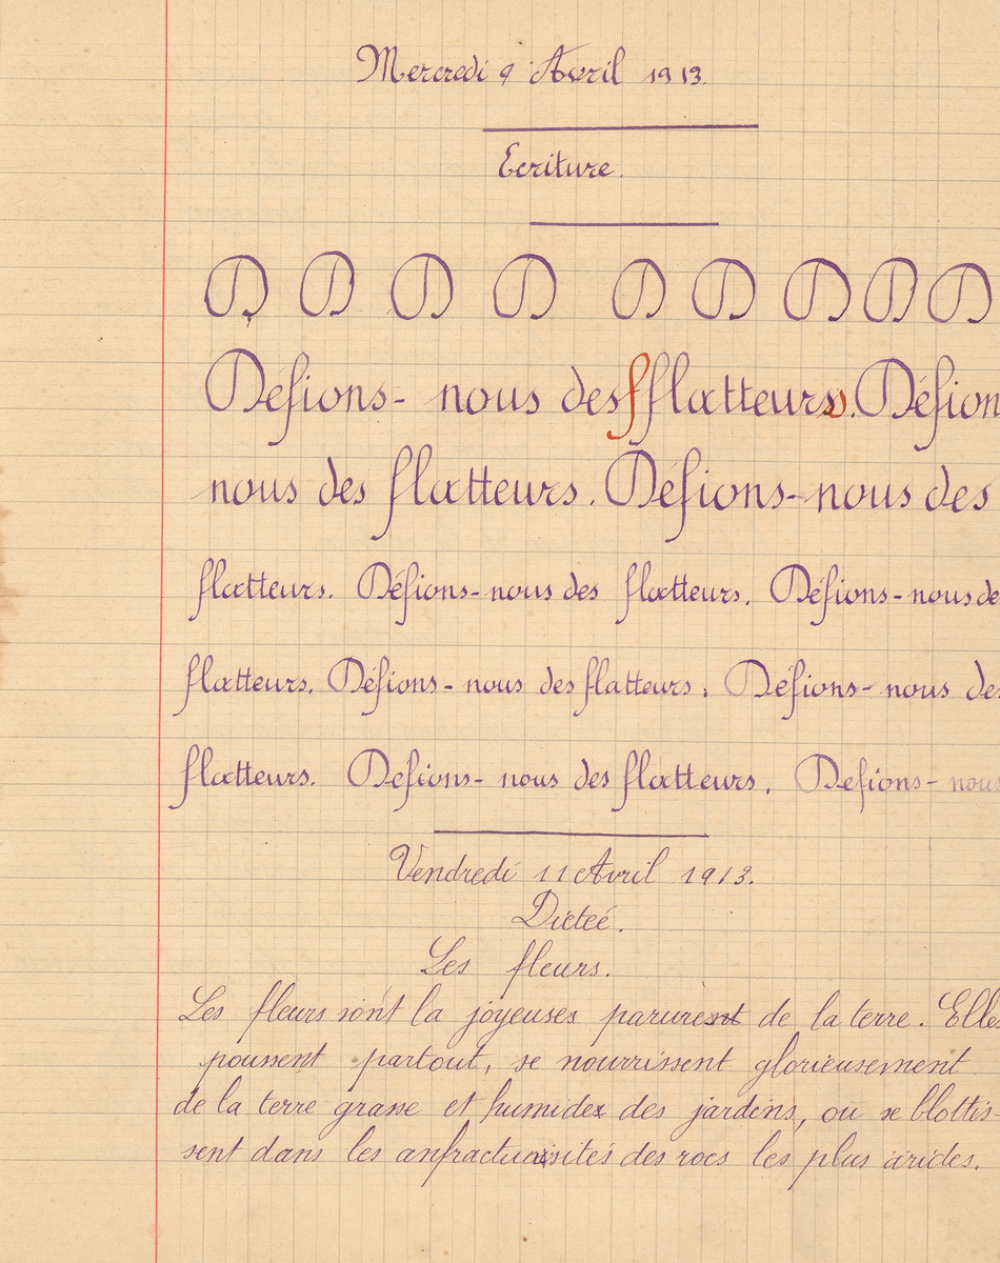 Mercredi 9 Avril 1913.
Ecriture.
D D D D D D D D D
Défions- nous des flatteurs. Défion
nous des flatteurs. Défions- nous des
flatteurs. Défions- nous des flatteurs. Défions- nous de
flatteurs. Défions- nous des flatteurs. Défions- nous des
flatteurs. Defions- nous des flatteurs. Defions- nous
Vendredi 11 Avril 1913.
Dicteé.
Les fleurs.
Les fleurs sont la joyeuses parure de la terre. Elles
poussent partout, se nourrissent glorieusement
de la terre grasse et humide des jardins, ou se blottis-
sent dans les anfractuosités des rocs les plus arides.